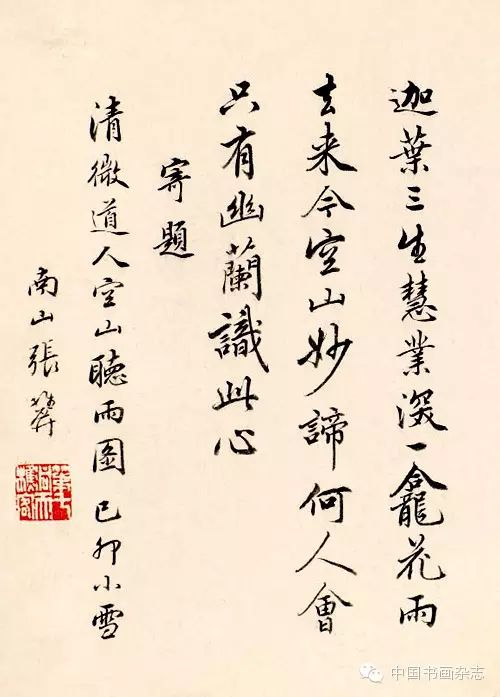 迦葉三生慧業深一龕花雨
去来今空山妙諦何人會
只有幽蘭識此心
寄題
清微道人空山聽雨圖 己卯小雪
南山張
中国书画杂志